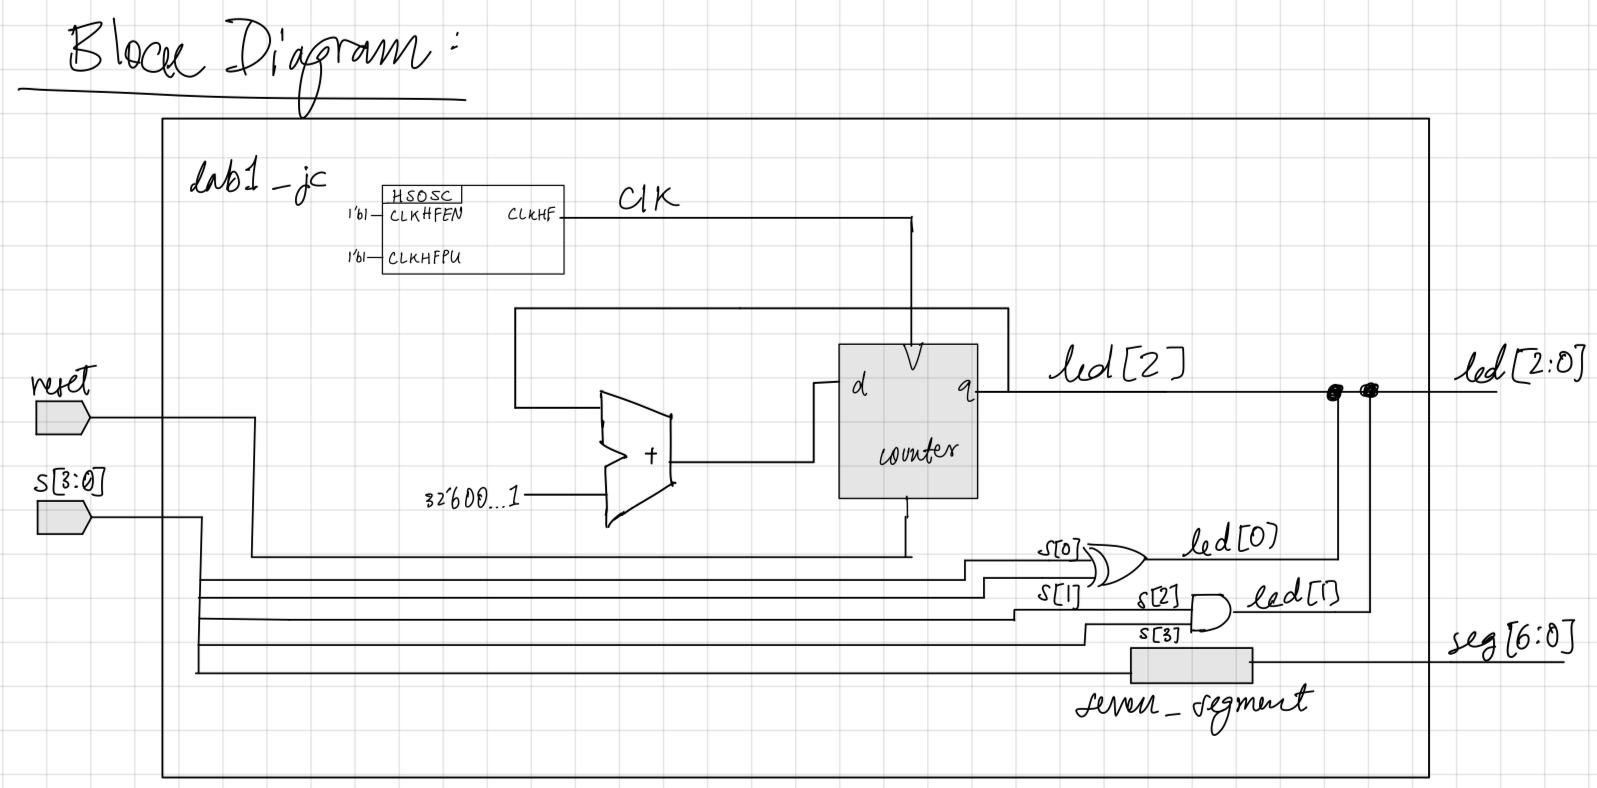 Block Diagram:
lab1_jc
HSOSC
1'b1 CLKHFEN CLKHF
clk
1'b1 CLKHFPU
reset
s[3:0]
d q
counter
led[2]
led[2:0]
+
32'b00...1
s[0]
led[0]
s[1]
s[2]
led[1]
s[3]
seg[6:0]
seven_segment